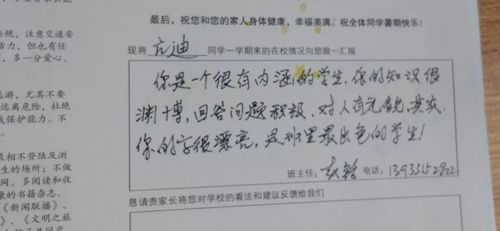 规,注意交通安
最后,祝您和您的家人身体健康,幸福美满,祝全体同学暑期快乐!
活力,但也有任
,多一分爱心,
现将 亢迪 同学一学期来的在校情况向您做一汇报
你是一个很有内涵的学生,你的知识很
游,尤其不要
渊博,回答问题积极,对人有礼貌,其实
远离危险,杜绝
保护能力。不
你的字很漂亮,是班里最出色的学生!
及相不登陆及测
班主任: 电话:
生的场所;不做
网。多阅读和收
康的书籍杂志、
恳请贵家长将您对学校的看法和建议反馈给我们
《新闻联播》、
、《文明之旅